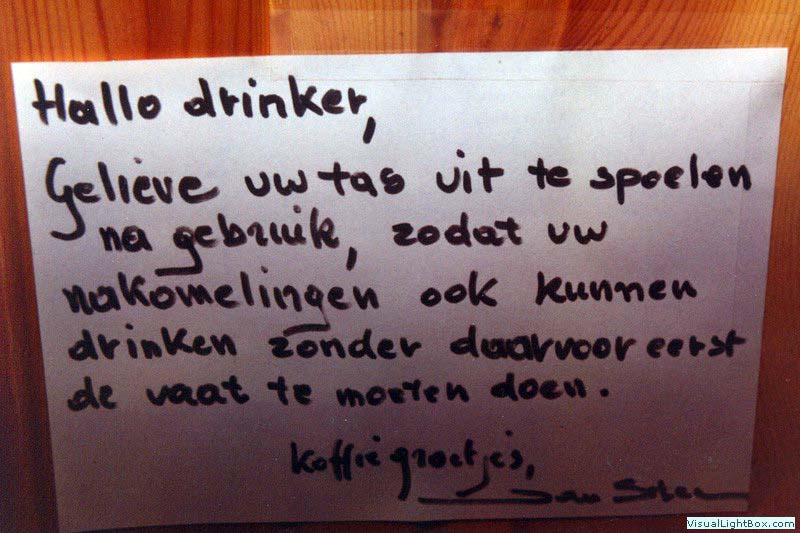 Hallo drinker,
Gelieve uw tas uit te spoelen
na gebruik, zodat uw
nakomelingen ook kunnen
drinken zonder daarvoor eerst
de vaat te moeten doen.
koffiegroetjes,
VisualLightBox.com